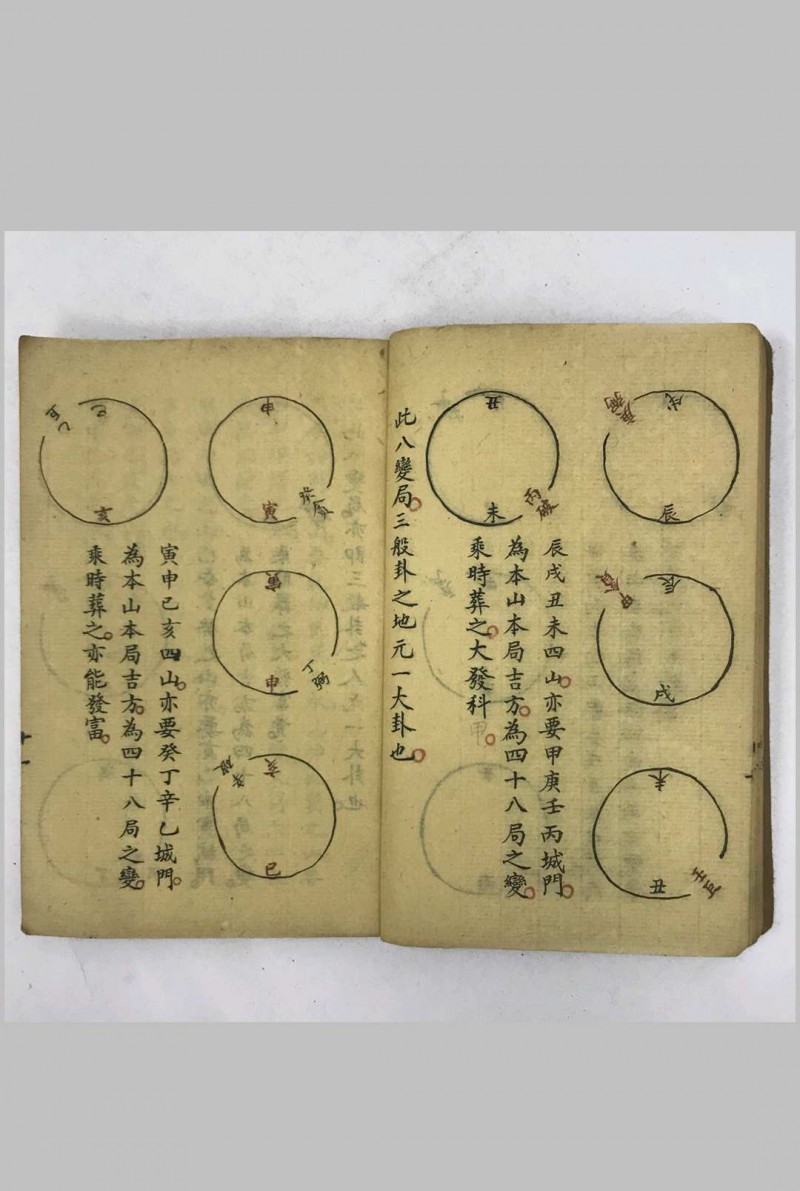 戌
辰
辰
戌
未
丑
辰戌丑未四山亦要甲庚壬丙城門
為本山本局吉方為四十八局之變
乘時葬之大發科
丑
未
丙破
此八變局三般卦之地元一大卦也
申
寅
寅
申
丁弼
亥
巳
寅申巳亥四山亦要癸丁辛乙城門
為本山本局吉方為四十八局之變
乘時葬之亦能發富
巳
亥